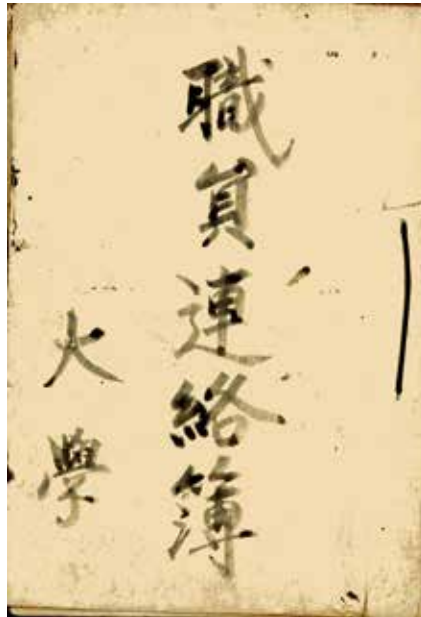 職員連絡簿
大學